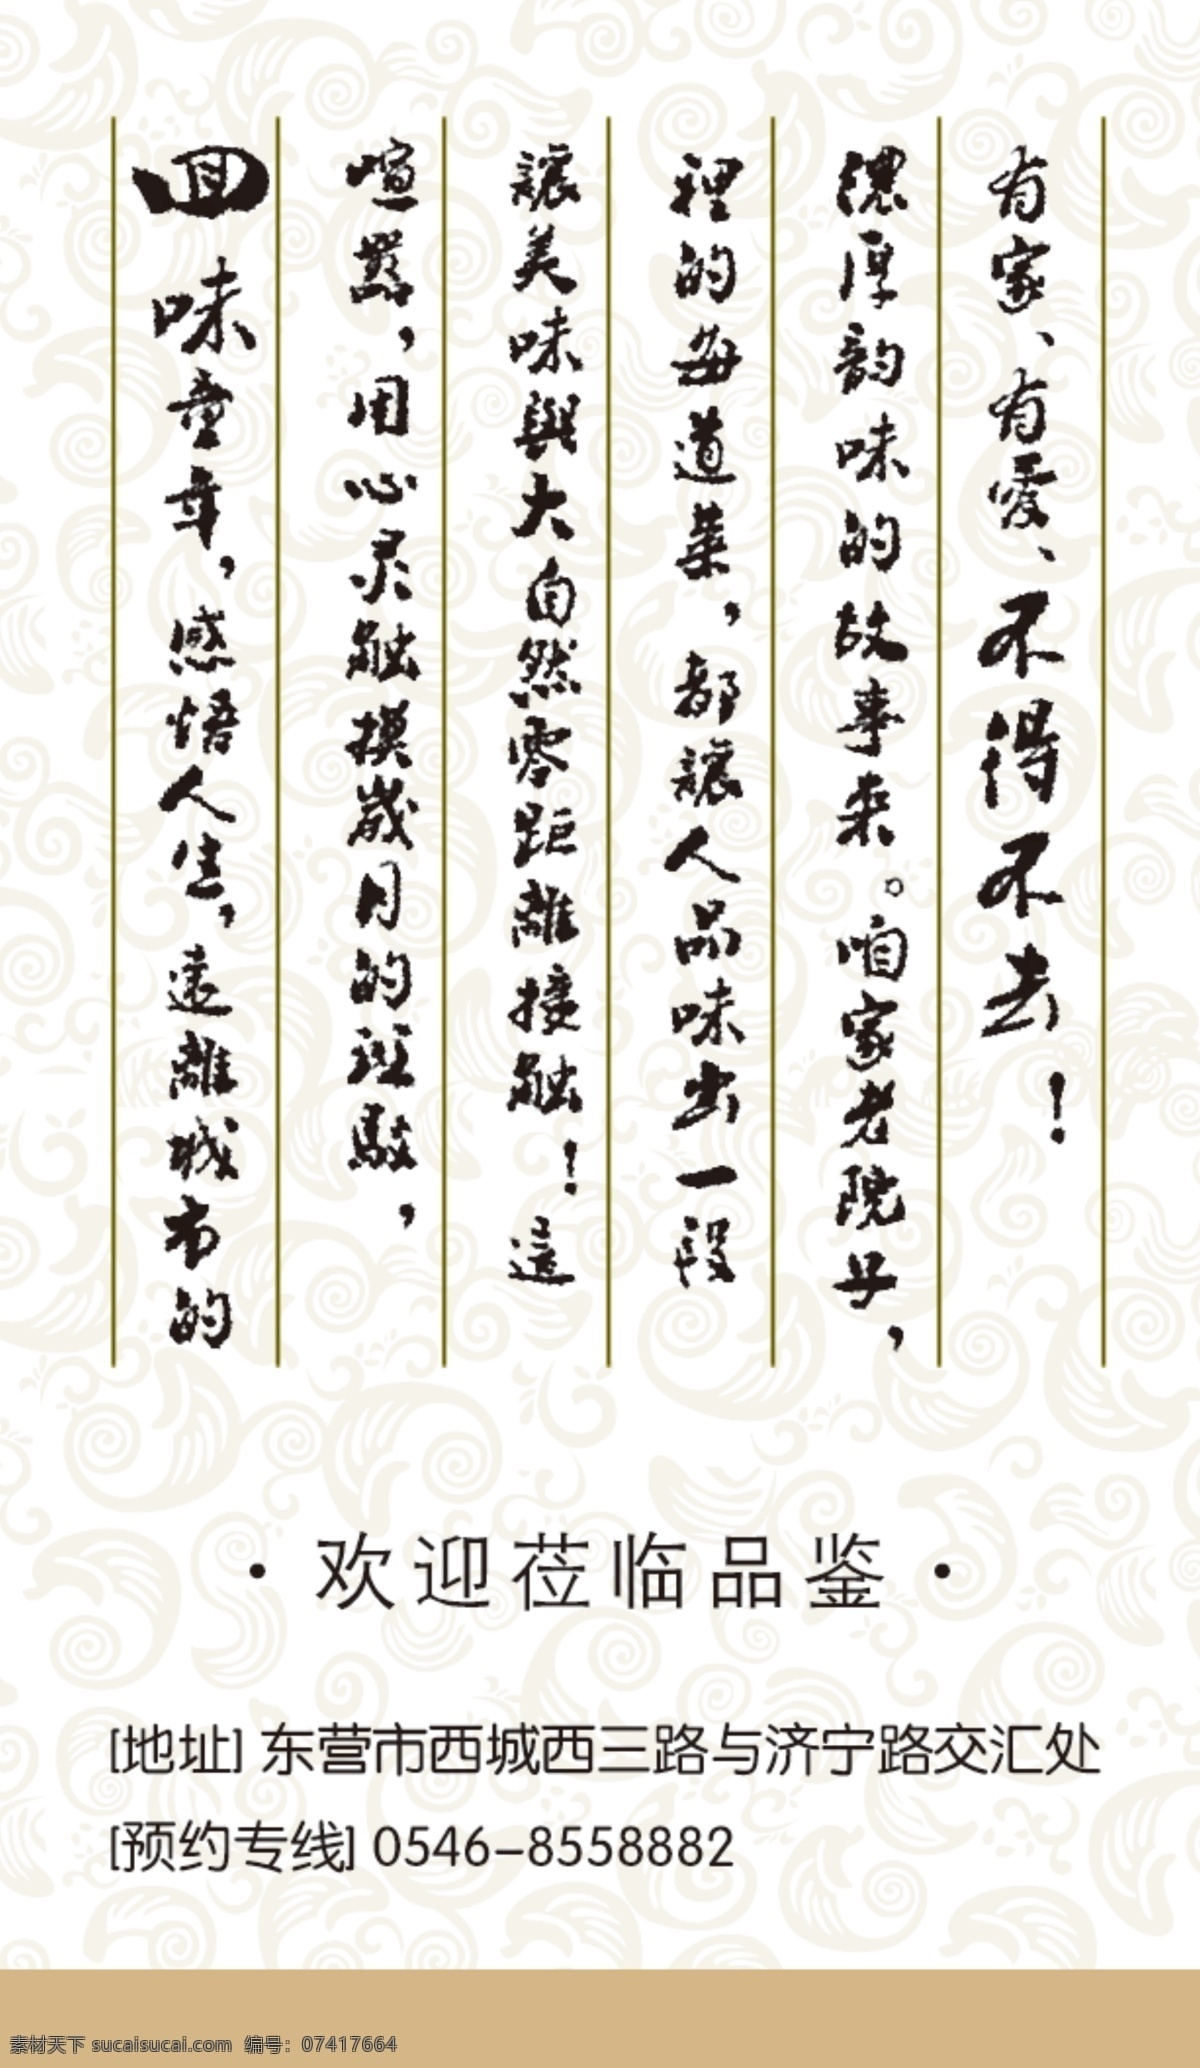 回味童年，感悟人生，遠離城市的
喧嚣，用心灵触摸歲月的斑駁，
讓美味與大自然零距離接触！這
裡的每道菜，都讓人品味出一段
濃厚韵味的故事来。咱家老院子，
有家、有愛、不得不去！
·欢迎莅临品鉴·
[地址] 东营市西城西三路与济宁路交汇处
[预约专线] 0546-8558882
素材天下 sucaisucai.com 编号：07417664